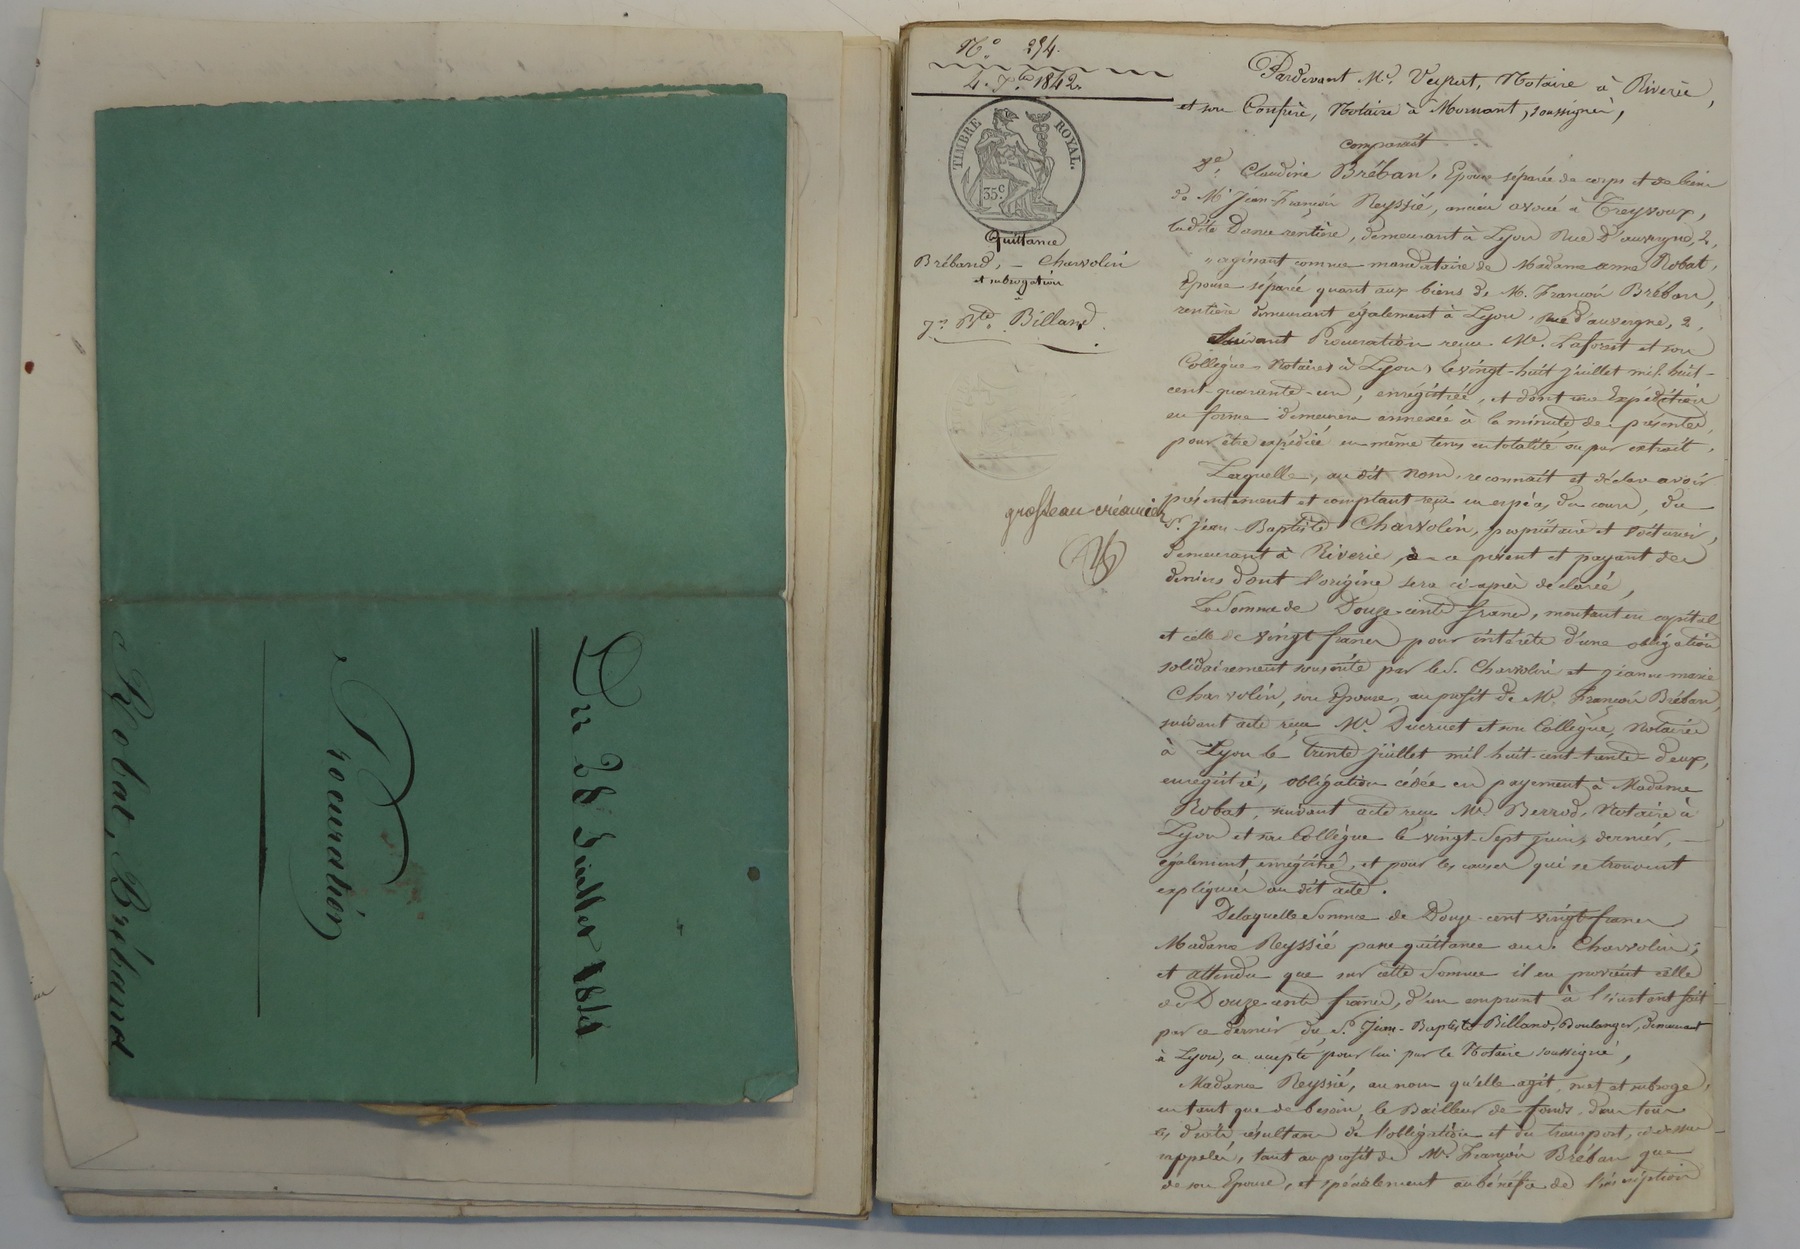 Du 28 Juillet 1841
Procuration
Robat, Briband
N.o 294.
4. 7.bre 1842.
TIMBRE ROYAL.
35 c.
Quittance
Bréband, – Charvolin
et subrogation
à
J.n B.te Billand.
grosse au créancier
Pardevant M.e Veyret, Notaire à Riverie,
et son Confrère, Notaire à Mornant, soussignés,
comparait
D.e Claudine Bréban, Epouse séparée de corps et de biens
de M.r Jean-François Reyssié, ancien avoué à Trevoux,
ladite Dame rentière, demeurant à Lyon Rue d'auvergne, 2,
agissant comme mandataire de Madame anne Robat,
Epouse séparée quant aux biens de M. François Bréban,
rentière demeurant également à Lyon, Rue d'auvergne, 2,
Suivant Procuration reçue M.e Laforest et son
Collègue, Notaires à Lyon, le vingt-huit juillet mil-huit-
cent-quarante-un, enrégistrée, et dont une Expédition
en forme demeurera annexée à la minute des présentes,
pour être expédiée en même tems en totalité ou par extrait.
Laquelle, au dit nom, reconnait et déclare avoir
présentement et comptant reçu en espèces du cours, du
S.r Jean-Baptiste Charvolin, propriétaire et voiturier,
demeurant à Riverie, à ce présent et payant des
deniers dont l'origine sera ci-après déclarée,
La Somme de Douze-cents francs, montant en capital
et celle de vingt francs pour intérêts d'une obligation
solidairement souscrite par le S. Charvolin et Jeanne marie
Charvolin, son Epouse, au profit de M.r François Bréban,
suivant acte reçu M.e Ducruet et son Collègue, Notaires
à Lyon le trente juillet mil-huit-cent-trente-deux,
enregistré, obligation cédée en payement à Madame
Robat, suivant acte reçu M.e Berrod, Notaire à
Lyon et son Collègue le vingt-Sept juin dernier,
également enregistré, et pour les causes qui se trouvent
expliquées au dit acte.
De laquelle Somme de Douze-cent vingt francs
Madame Reyssié passe quittance au S. Charvolin;
et attendu que sur cette Somme il en provient celle
de Douze cents francs, d'un emprunt à l'instant fait
par ce dernier du S.r Jean-Baptiste Billand, Boulanger, demeurant
à Lyon, ce accepté pour lui par le Notaire soussigné,
Madame Reyssié, au nom qu'elle agit, met et subroge,
en tant que de besoin, le Bailleur de fonds dans tous
les droits résultans de l'obligation et du transport, ci-dessus
rappelés, tant au profit de M.r François Bréban que
de son Epouse, et spécialement au bénéfice de l'inscription